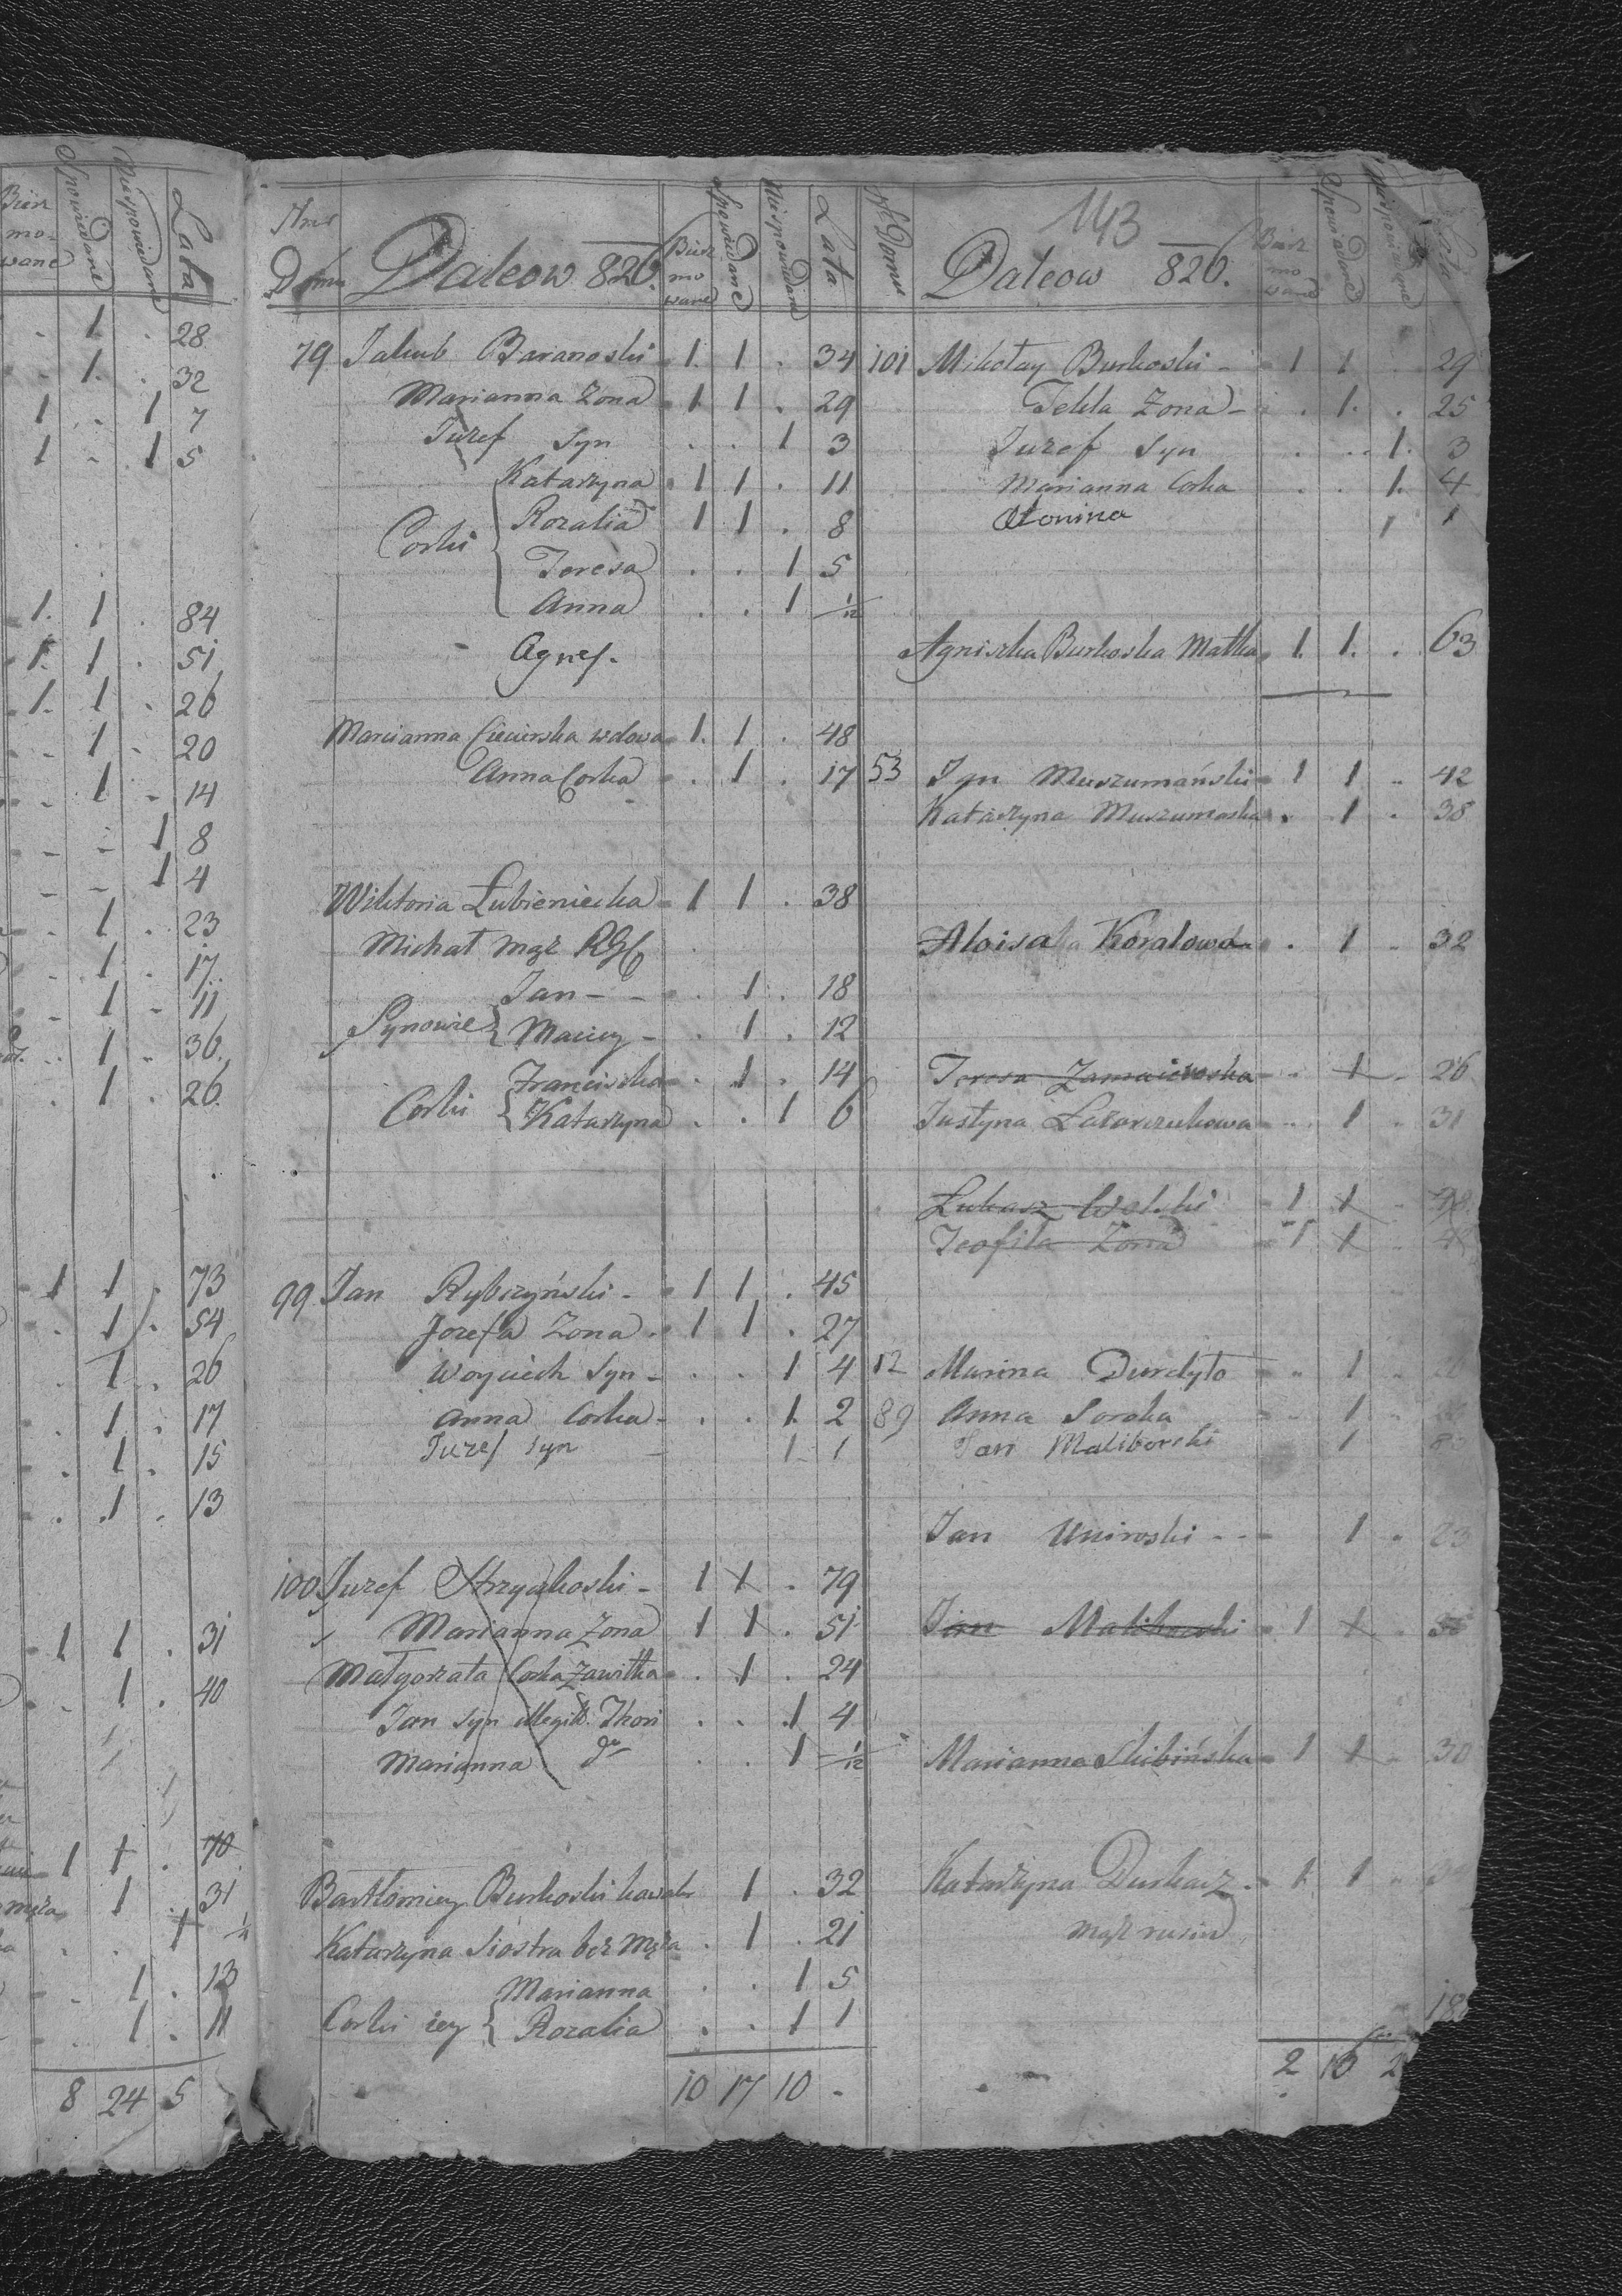 Bierz
mo-
wane
Spowiadane
Niespowiadane
Lata
1. . 28
1. . 32
1 . 1 7
1 - 1 5
1. 1 . 84
1. 1 . 51
1. 1 . 26
1 - 20
1 - 14
1 8
1 4
1 . 23
1 . 17
1 - 11
1 - 36
1 . 26
1 1 . 73
1 . 54
1 . 26
1 . 17
1 . 15
1 . 13
1 1 . 31
1 . 40
1 1 . 70
męża 1 . 31
1
1 . 13
1 . 11
8 24 5
Domu Daleow 826.
Bierz
mo
wane
Spowiadane
Niespowiadane
Lata
79 Jakub Baranoski 1. 1 . 34
Marianna Zona 1 1 . 29
Juzef Syn . . 1 3
Katarzyna 1 1 . 11
Corki Rozalia 1 1 . 8
Teresa . . 1 5
Anna . . 1 1/12
Agnes.
Marianna Ciecierska wdowa 1. 1 . 48
Anna Corka . 1 . 17
Wiktoria Łubieniecka 1 1 . 38
Michał mąż RGC
Jan . 1 . 18
Synowie Maciey . 1 . 12
Franciszka . 1 . 14
Corki Katarzyna . . 1 6
99 Jan Rybczyński 1 1 . 45
Jozefa Zona 1 1 . 27
Woyciech Syn . . 1 4
Anna Corka . . 1. 2
Juzef Syn 1 1
100 Juzef Strzyzkoski 1 1 . 79
Marianna Zona 1 1 . 51
Małgorzata Corka Zawitka . 1 . 24
Jan Syn illegit. Thori . . 1 4
Marianna do . . 1 1/12
Bartłomiey Burkoski kawaler 1 . 32
Katarzyna Siostra bez Męża . 1 . 21
Marianna . . 1 5
Corki iey Rozalia . . 1 1
10 17 10 -
143
N Domu Daleow 826.
Bierz
mo
wane
Spowiadane
Niespowiadane
Lata
101 Mikołay Burkoski 1 1 . 29
Tekla Zona . 1. . 25
Juzef Syn . . 1. 3
Marianna Corka . . 1. 4
Atonina 1 1
Agniszka Burkoska Matka 1. 1. . 63
53 Jgn Muszumański 1 1 . 42
Katarzyna Muszumoska . 1 . 38
Aloisa Koralowa . 1 . 32
Teresa Zamaiewska . 1 . 26
Justyna Łazarczukowa . 1 . 31
Łukasz Wolski 1 1
Teofila Zona 1 1
12 Marina Durdyło . 1
89 Anna Soroka . 1
Jan Maliborski 1
Jan Uniroski 1 . 23
Jan Maliborski 1 1
Marianna Skibińska 1 1 . 30
Katarzyna Durkacz 1 1
mąż rusin
2 16 2